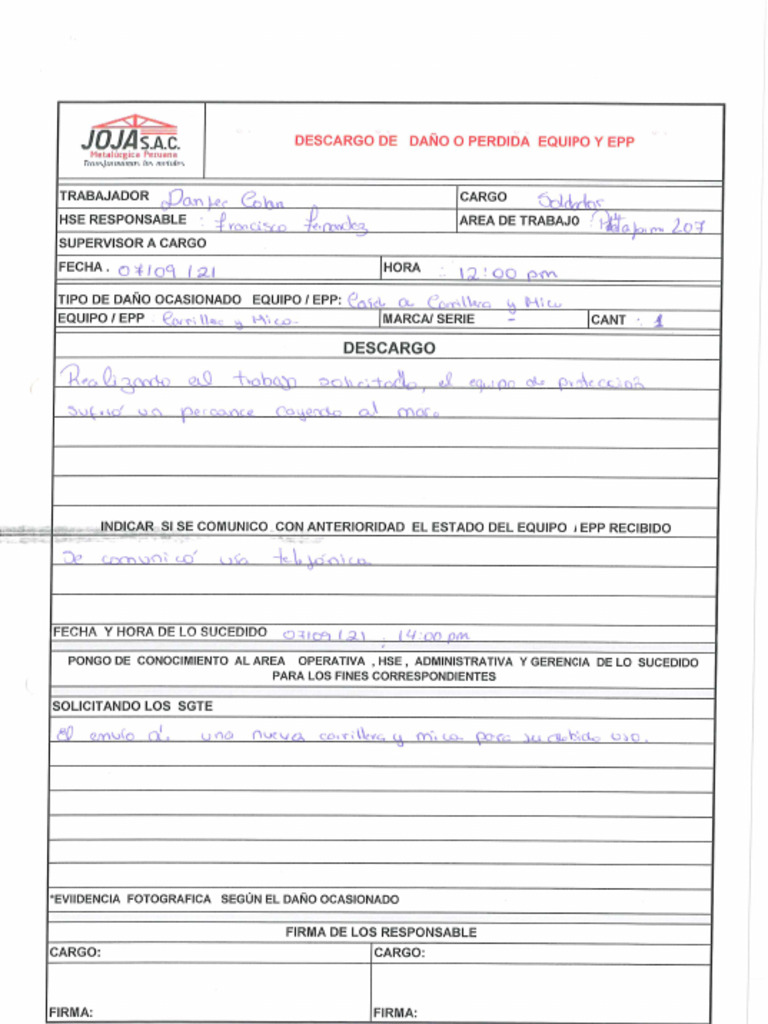 JOJA S.A.C.
Metalúrgica Peruana
Transformamos los metales
DESCARGO DE DAÑO O PERDIDA EQUIPO Y EPP
TRABAJADOR
CARGO
HSE RESPONSABLE : Francisco Fernandez
AREA DE TRABAJO : 207
SUPERVISOR A CARGO
FECHA . 07/09/21
HORA : 12:00 pm
TIPO DE DAÑO OCASIONADO EQUIPO / EPP:
EQUIPO / EPP : Carrillera y Mica.
MARCA/ SERIE -
CANT : 1
DESCARGO
Realizando el trabajo solicitado, el equipo de protección
sufrió un percance cayendo al mar.
INDICAR SI SE COMUNICO CON ANTERIORIDAD EL ESTADO DEL EQUIPO / EPP RECIBIDO
Se comunicó vía telefónica
FECHA Y HORA DE LO SUCEDIDO 07/09/21 . 14:00 pm
PONGO DE CONOCIMIENTO AL AREA OPERATIVA , HSE , ADMINISTRATIVA Y GERENCIA DE LO SUCEDIDO
PARA LOS FINES CORRESPONDIENTES
SOLICITANDO LOS SGTE
El envío d una nueva carrillera y mica para su debido uso.
*EVIIDENCIA FOTOGRAFICA SEGÚN EL DAÑO OCASIONADO
FIRMA DE LOS RESPONSABLE
CARGO:
CARGO:
FIRMA:
FIRMA: